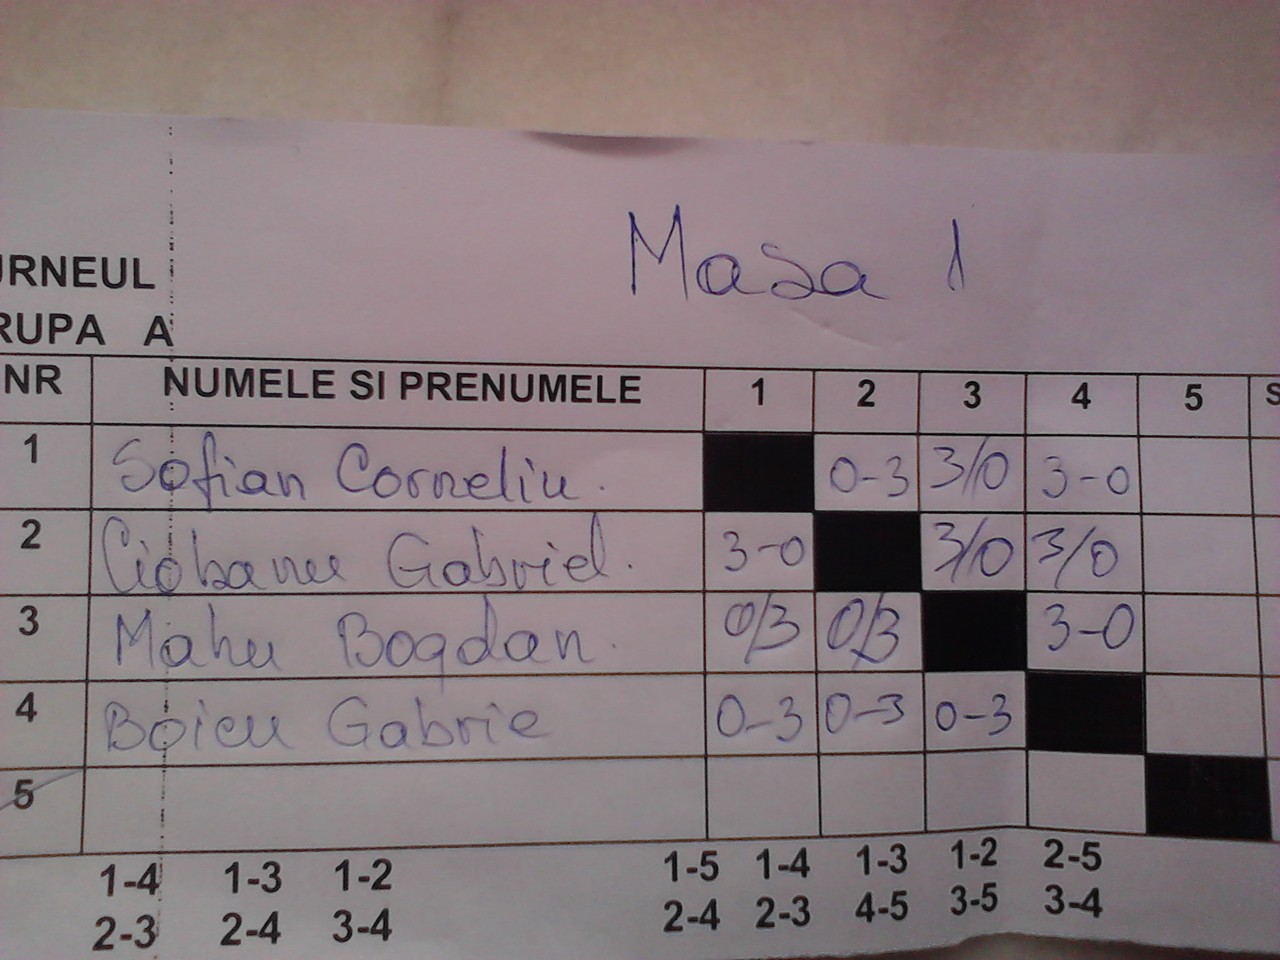 Masa 1
URNEUL
RUPA A
NR NUMELE SI PRENUMELE 1 2 3 4 5 S
1 Sofian Corneliu. 0-3 3/0 3-0
2 Ciobanu Gabriel. 3-0 3/0 3/0
3 Mahu Bogdan. 0/3 0/3 3-0
4 Boicu Gabrie 0-3 0-3 0-3
5
1-4 1-3 1-2 1-5 1-4 1-3 1-2 2-5
2-3 2-4 3-4 2-4 2-3 4-5 3-5 3-4